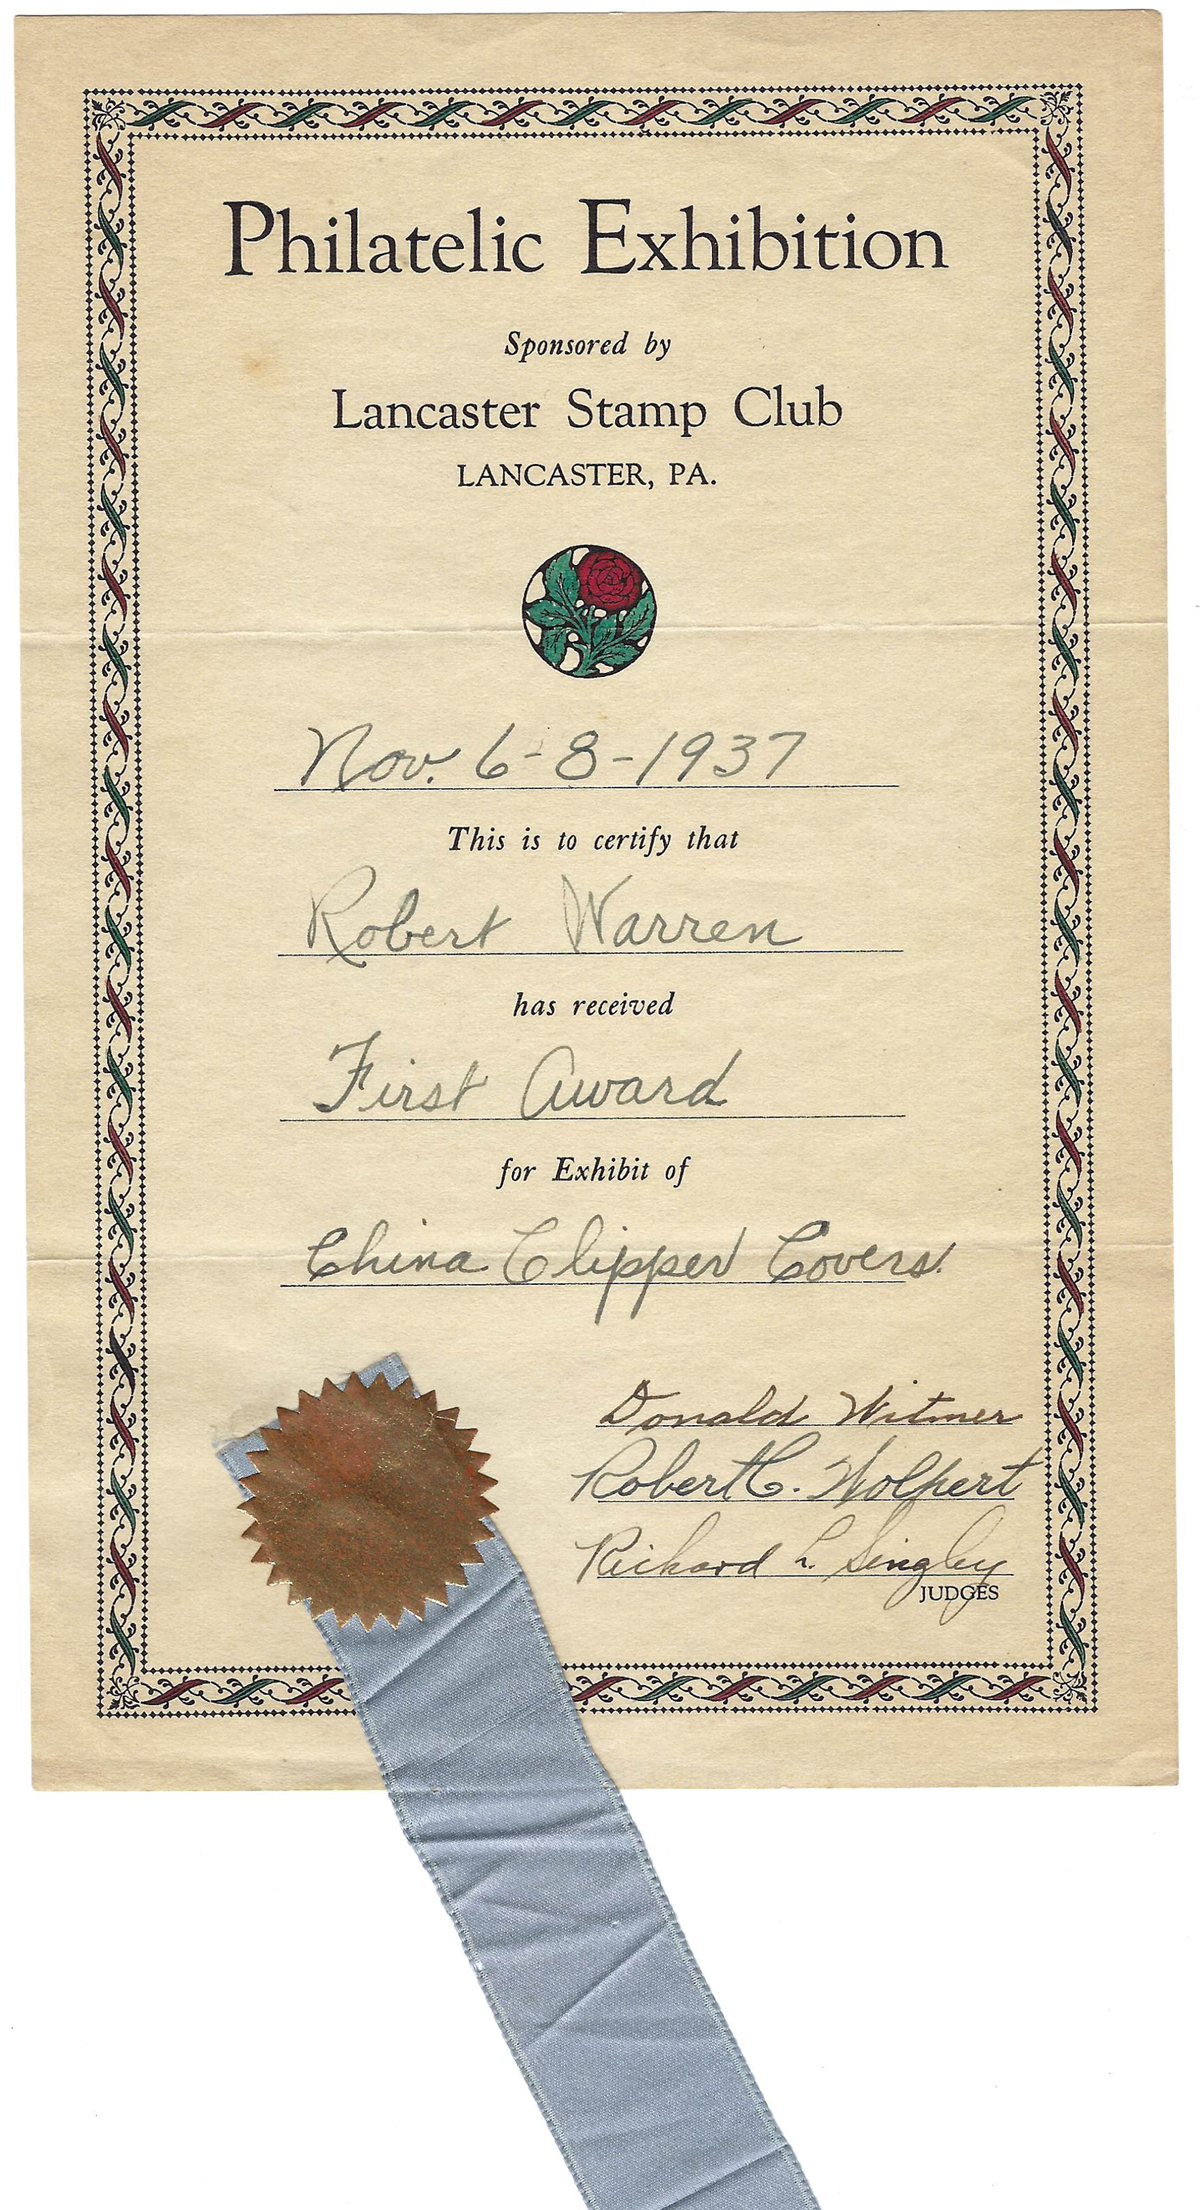 Philatelic Exhibition
Sponsored by
Lancaster Stamp Club
LANCASTER, PA.
Nov. 6-8-1937
This is to certify that
Robert Warren
has received
First Award
for Exhibit of
China Clipper Covers.
Donald Witmer
Robert C. Wolpert
Richard L. Singley
JUDGES